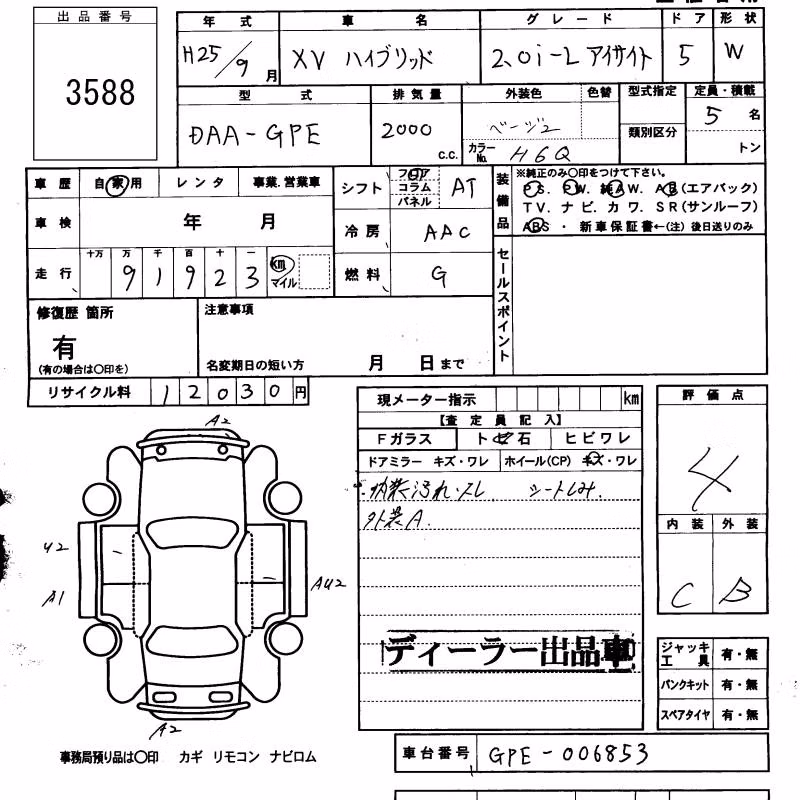 出品番号
3588
年式 車名 グレード ドア 形状
H25/9月 XV ハイブリッド 2.0i-L アイサイト 5 W
型式 排気量 外装色 色替 型式指定 定員・積載
DAA-GPE 2000 c.c. ベージュ 類別区分 5名
カラーNo. H6Q トン
車歴 自家用 レンタ 事業.営業車
シフト フロア コラム パネル AT
装備品 ※純正のみ〇印をつけて下さい。
PS. PW. 純AW. AB(エアバック)
TV. ナビ. カワ. SR(サンルーフ)
ABS・新車保証書←(注)後日送りのみ
車検 年 月
冷房 AAC
走行 十万 万 千 百 十 一
91923 km マイル
燃料 G
セールスポイント
修復歴 箇所
有
(有の場合は〇印を)
注意事項
名変期日の短い方 月 日まで
リサイクル料 12030円
現メーター指示 km
【査定員記入】
Fガラス トビ石 ヒビワレ
ドアミラー キズ・ワレ ホイール(CP) キズ・ワレ
内装汚れ・スレ シートしみ.
外装A.
ディーラー出品車
評価点
4
内装 外装
C B
A2
U2
A1
AU2
A2
ジャッキ工具 有・無
パンクキット 有・無
スペアタイヤ 有・無
事務局預り品は〇印 カギ リモコン ナビロム
車台番号 GPE-006853